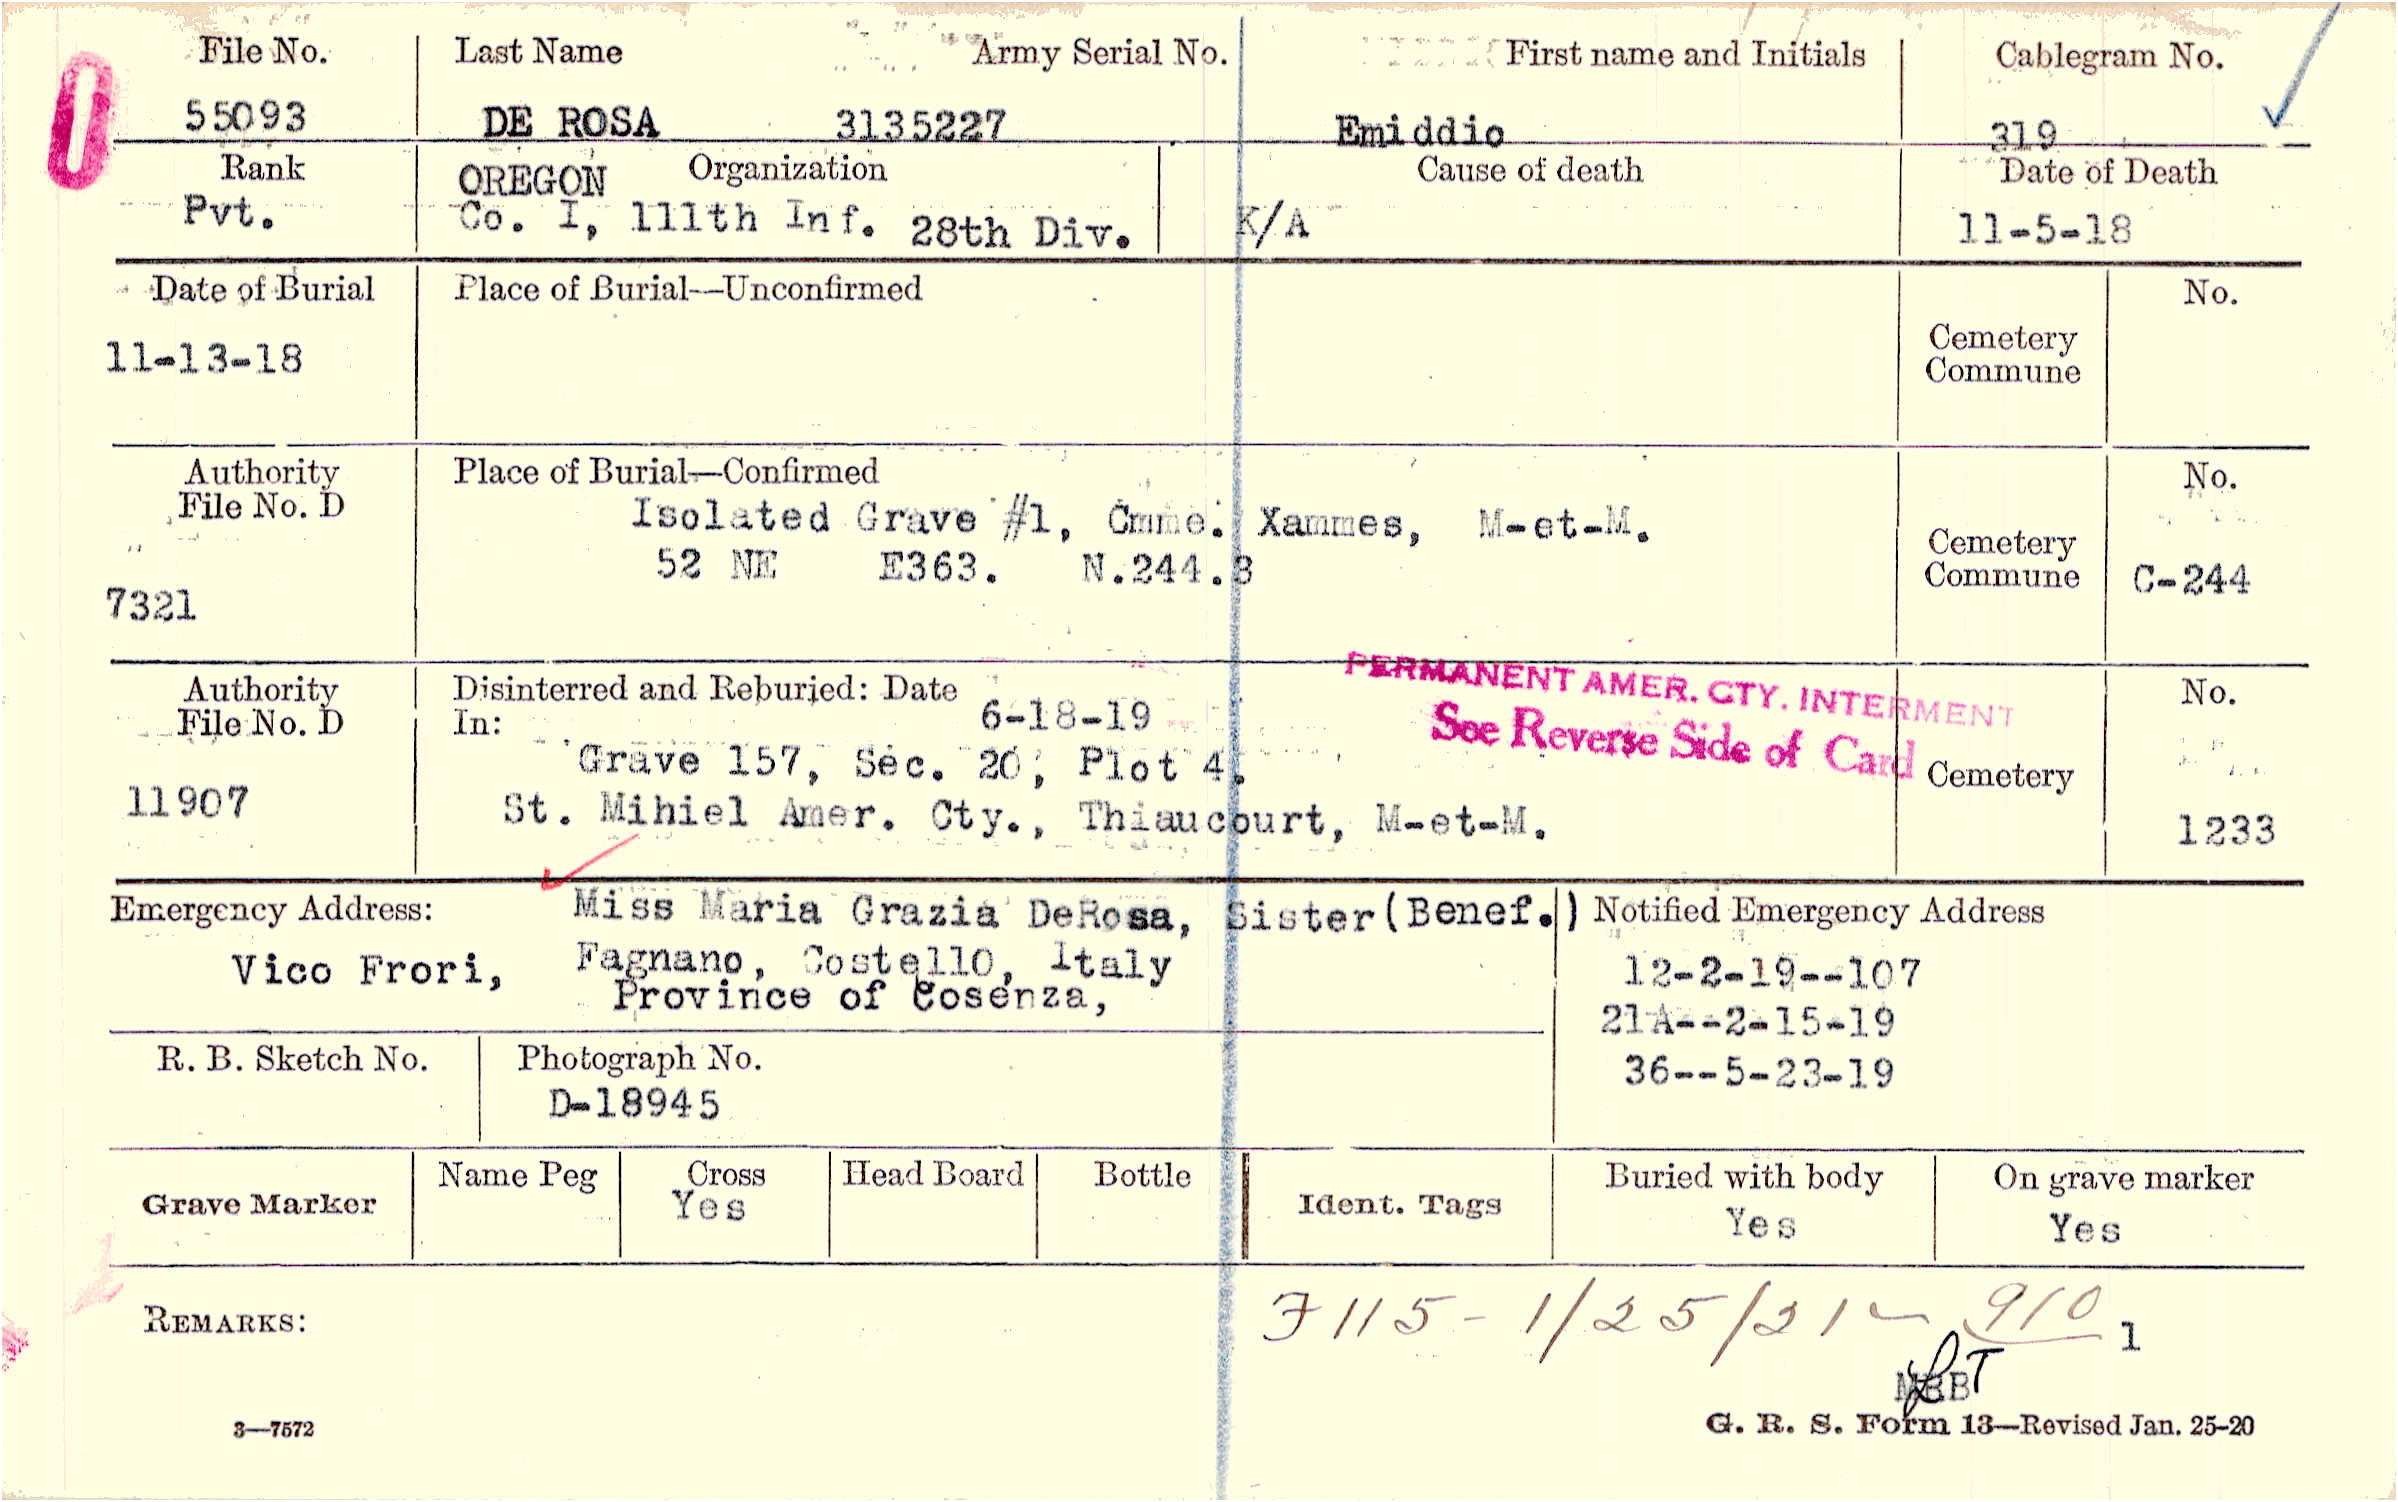 File No. Last Name Army Serial No. First name and Initials Cablegram No.
55093 DE ROSA 3135227 Emiddio 319
Rank OREGON Organization Cause of death Date of Death
Pvt. Co. I, 111th Inf. 28th Div. K/A 11-5-18
Date of Burial Place of Burial—Unconfirmed No.
11-13-18 Cemetery
Commune
Authority Place of Burial—Confirmed No.
File No. D Isolated Grave #1, Cmme. Xammes, M-et-M.
52 NE E363. N.244.8 Cemetery
7321 Commune C-244
PERMANENT AMER. CTY. INTERMENT
See Reverse Side of Card
Authority Disinterred and Reburied: Date 6-18-19 No.
File No. D In:
Grave 157, Sec. 20, Plot 4. Cemetery
11907 St. Mihiel Amer. Cty., Thiaucourt, M-et-M. 1233
Emergency Address: Miss Maria Grazia DeRosa, Sister (Benef.) Notified Emergency Address
Vico Frori, Fagnano, Costello, Italy 12-2-19--107
Province of Cosenza,
21A--2-15-19
R. B. Sketch No. Photograph No. 36--5-23-19
D-18945
Grave Marker Name Peg Cross Head Board Bottle Ident. Tags Buried with body On grave marker
Yes Yes Yes
REMARKS: F115 - 1/25/21 — 910 1
3—7572 G. R. S. Form 13—Revised Jan. 25-20